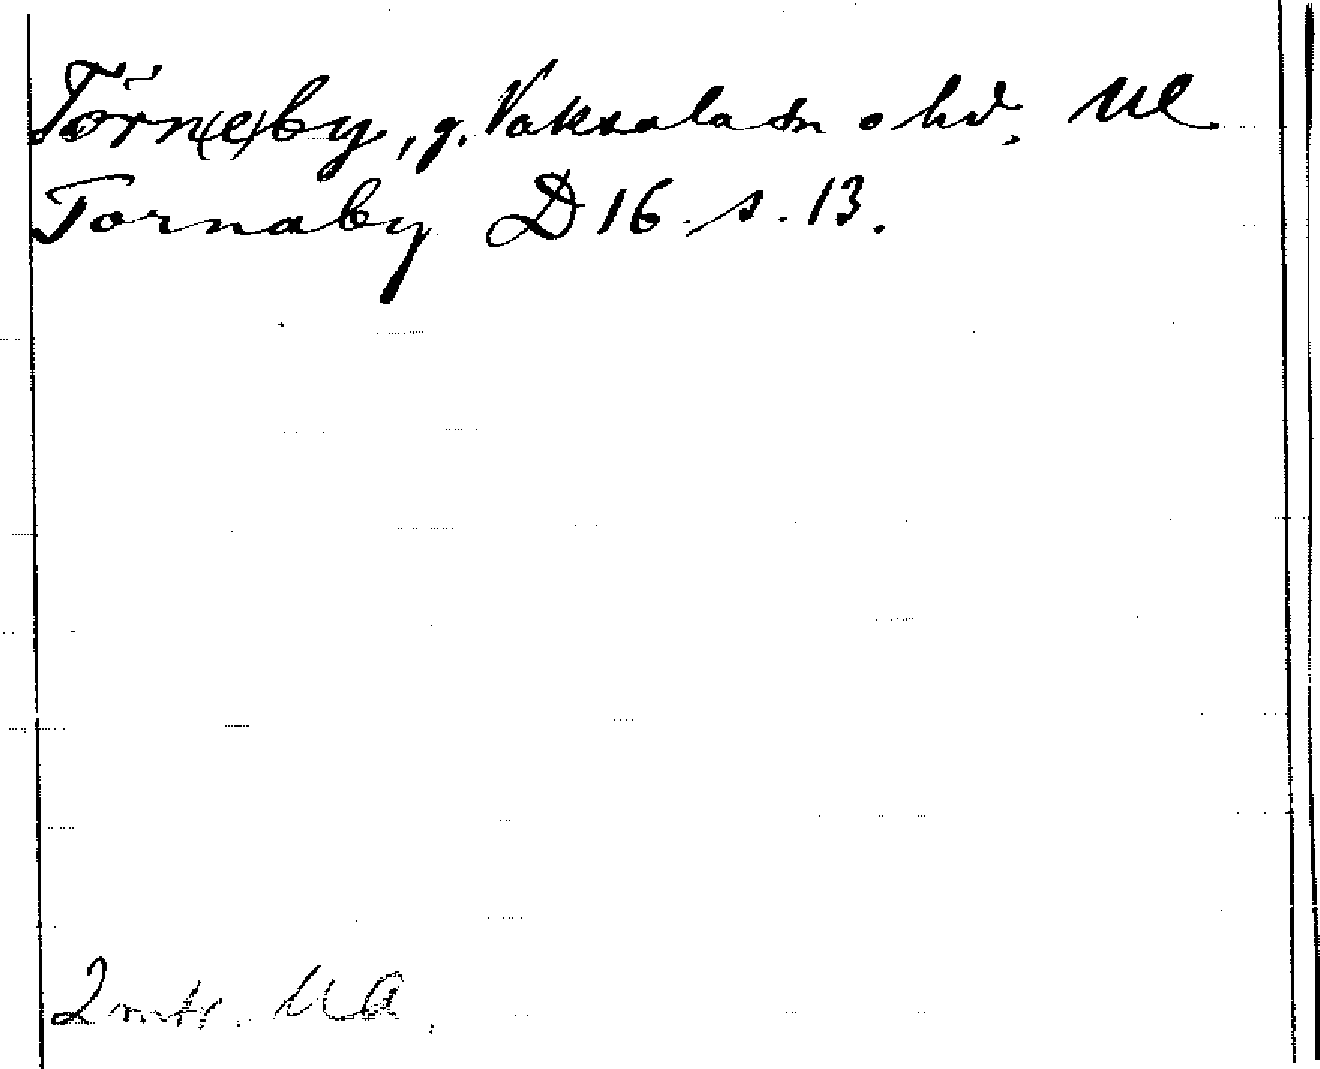 Törn(e)by, g. Vaksala sn o hd. Ul
Tornaby D 16 s. 13.
2 mtr. UA.